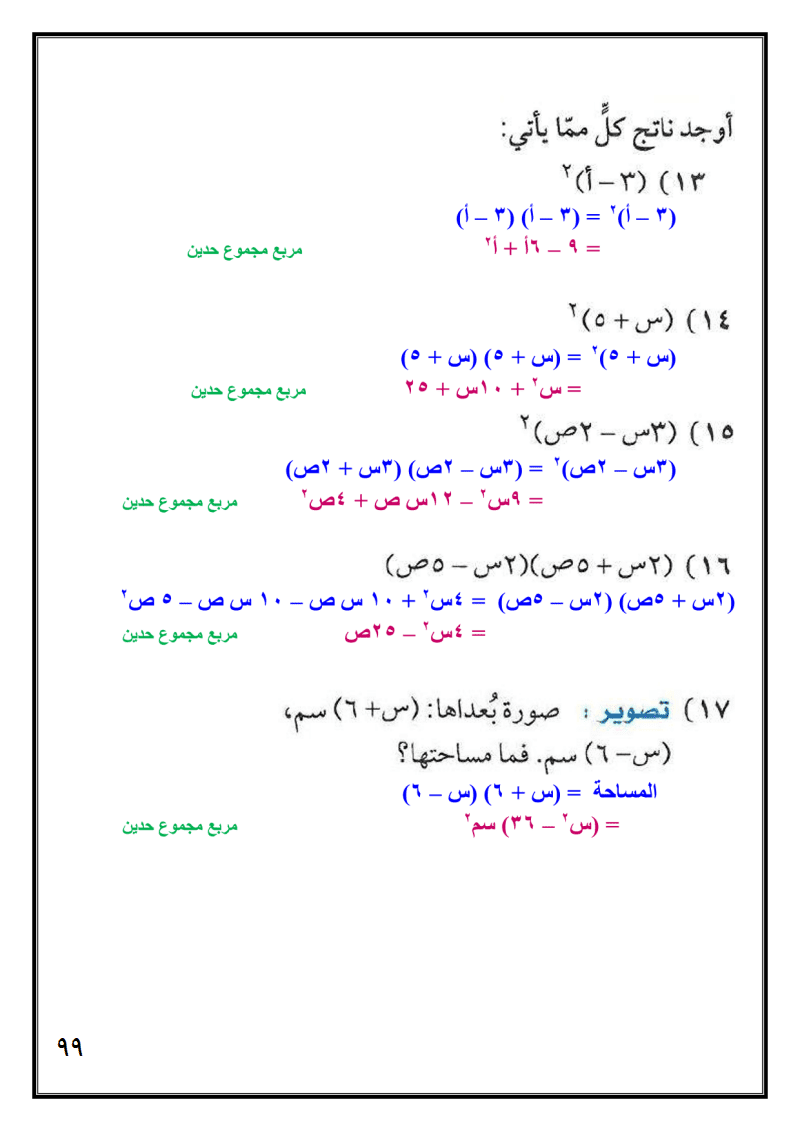 أوجد ناتج كلٍّ ممّا يأتي:
١٣) (٣ – أ)²
(٣ – أ)² = (٣ – أ) (٣ – أ)
= ٩ – ٦أ + أ² مربع مجموع حدين
١٤) (س + ٥)²
(س + ٥)² = (س + ٥) (س + ٥)
= س² + ١٠س + ٢٥ مربع مجموع حدين
١٥) (٣س – ٢ص)²
(٣س – ٢ص)² = (٣س – ٢ص) (٣س + ٢ص)
= ٩س² – ١٢س ص + ٤ص² مربع مجموع حدين
١٦) (٢س + ٥ص)(٢س – ٥ص)
(٢س + ٥ص) (٢س – ٥ص) = ٤س² + ١٠ س ص – ١٠ س ص – ٥ ص²
= ٤س² – ٢٥ص مربع مجموع حدين
١٧) تصوير : صورة بُعداها: (س+ ٦) سم،
(س– ٦) سم. فما مساحتها؟
المساحة = (س + ٦) (س – ٦)
= (س² – ٣٦) سم² مربع مجموع حدين
٩٩